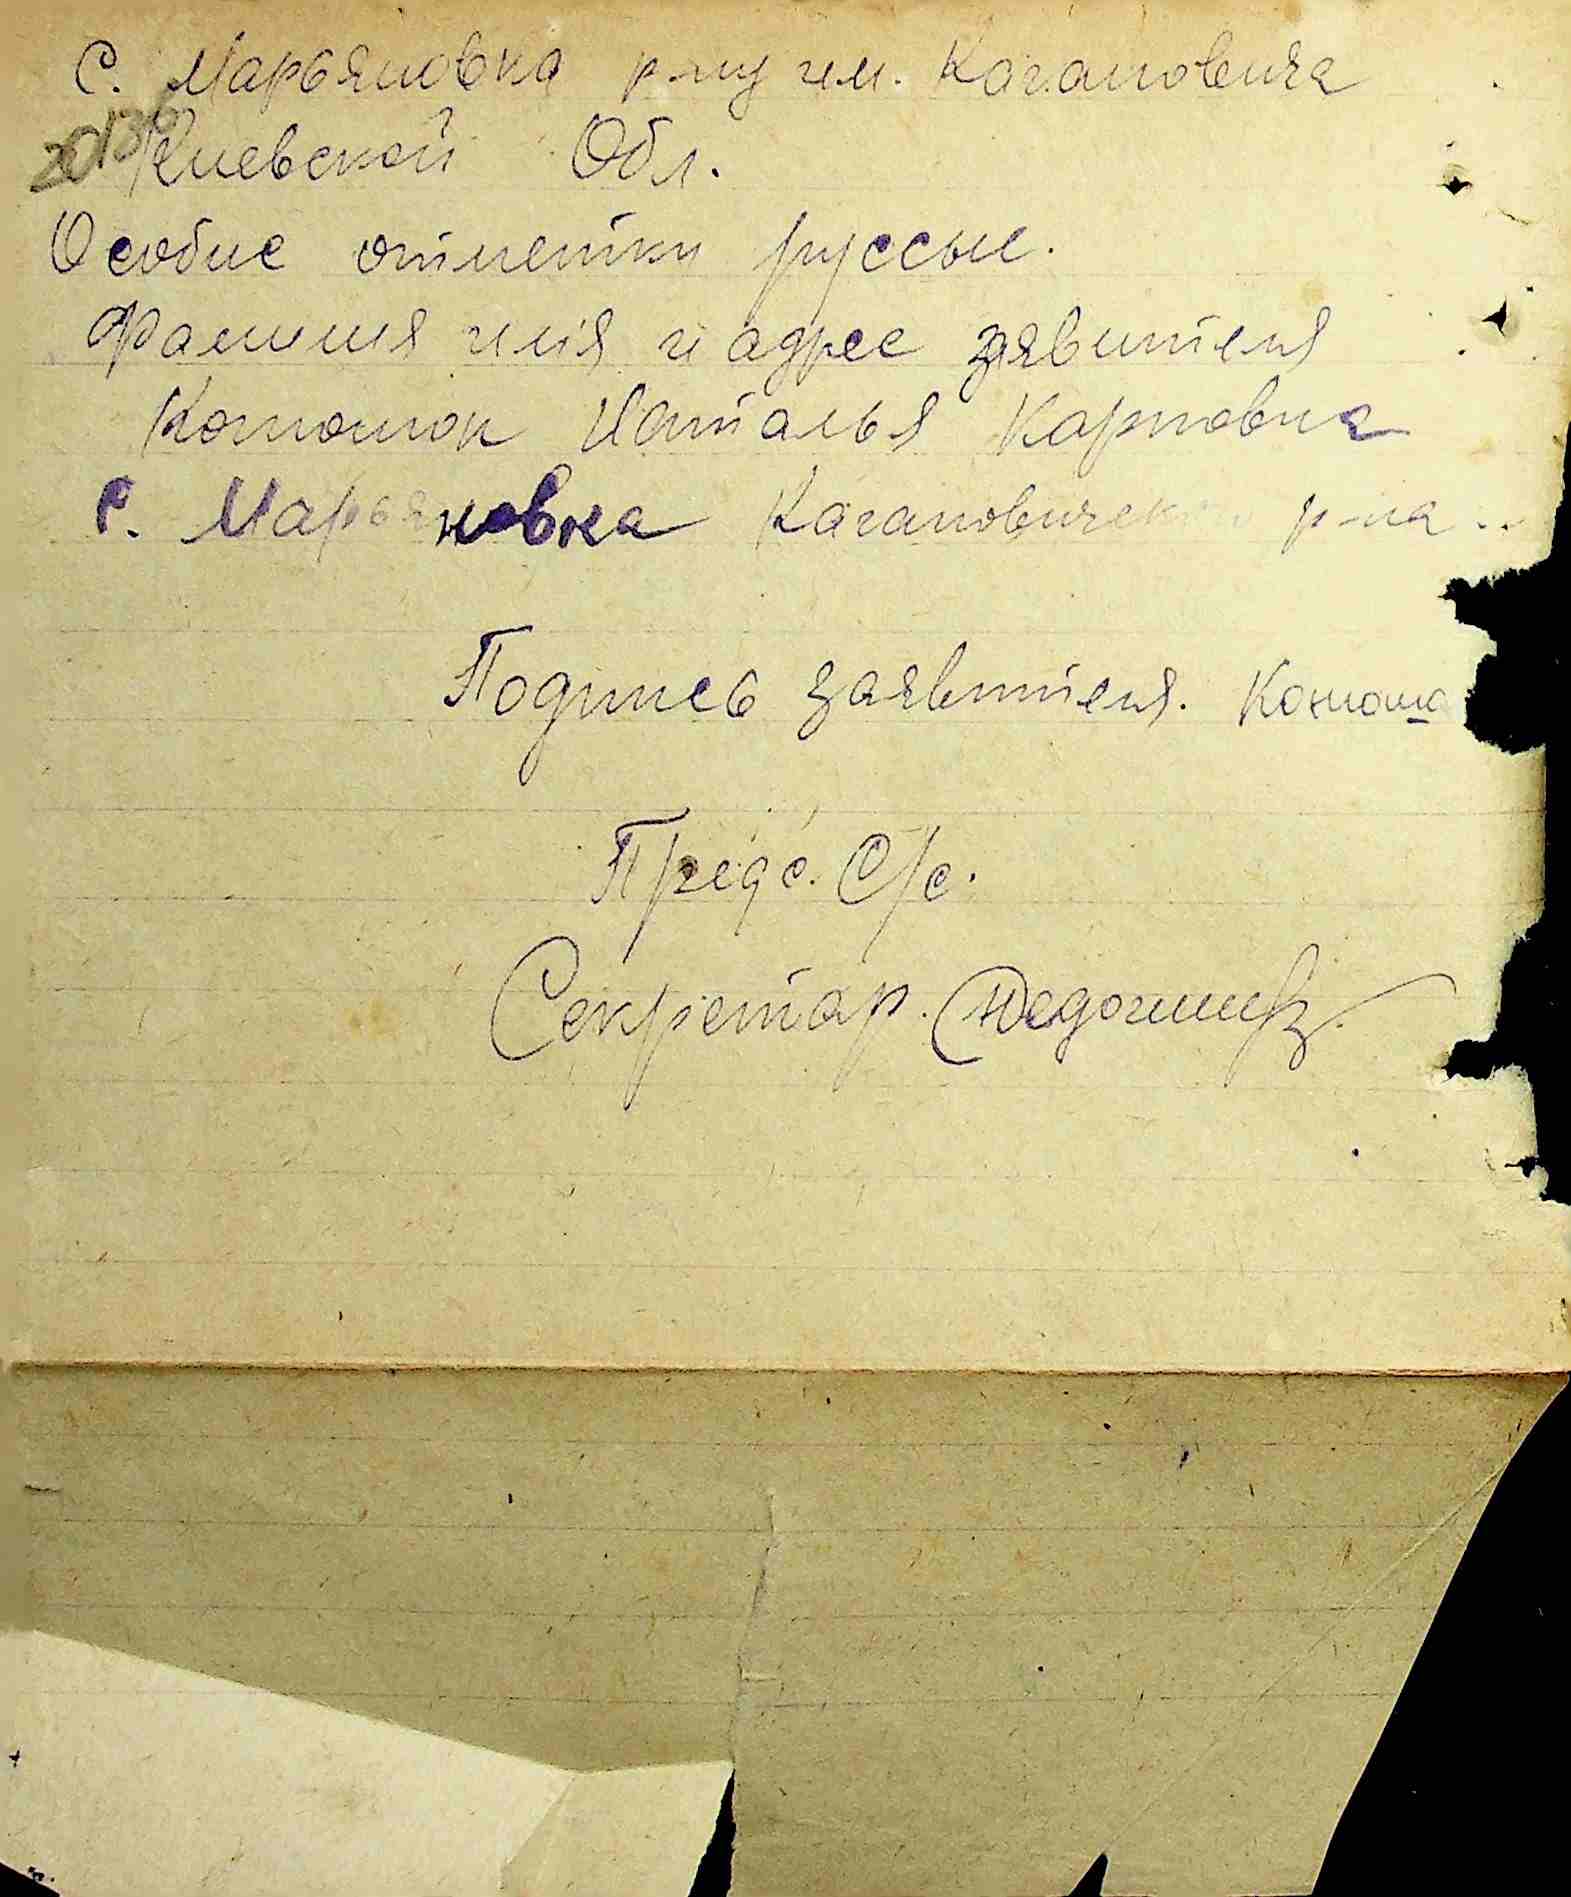 С. Марьяновка р-ну им. Кагановича
Киевской Обл.
Особие отметки руссые.
Фамилия имя и адрес заявителя
Наталья Карповна
с. Марьяновка Кагановическ р-на
Подпись заявителя.
Предс. С/с.
Секретар.